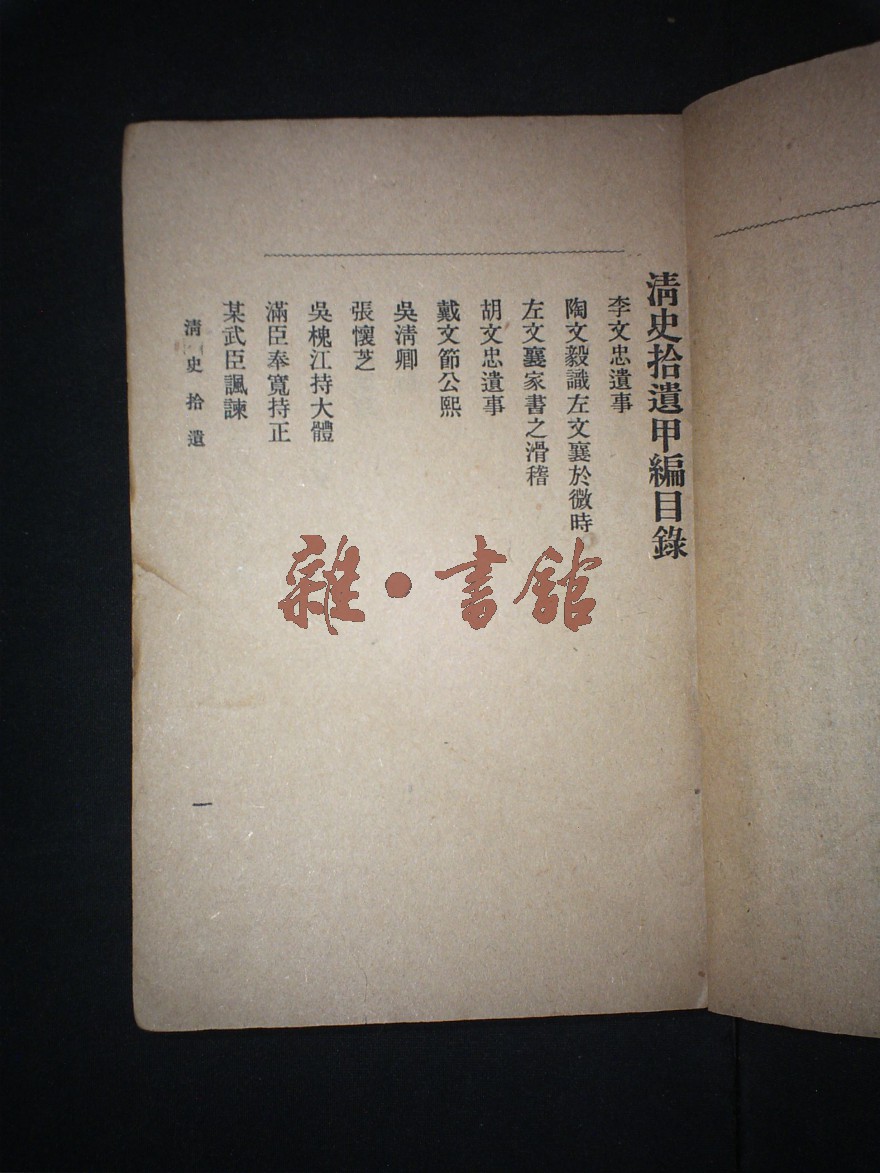 清史拾遺甲編目錄
李文忠遺事
陶文毅識左文襄於微時
左文襄家書之滑稽
胡文忠遺事
戴文節公熙
吳清卿
張懷芝
吳槐江持大體
滿臣奉寬持正
某武臣諷諫
清史拾遺
一
雜・書館